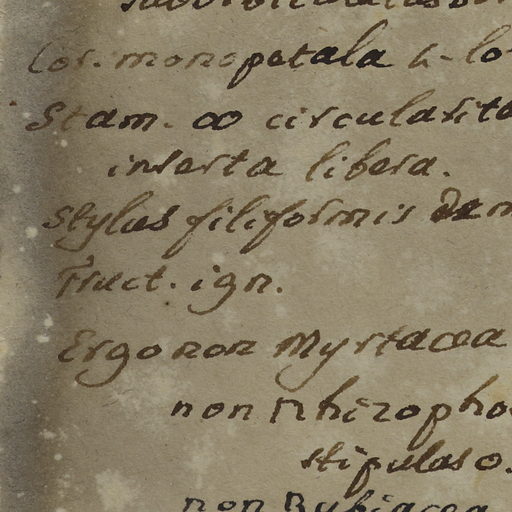 Cor. monopetala 4-lo
Stam. ∞ circularite
inserta libera.
Stylus filiformis
Fruct. ign.
Ergo non Myrtacea
non Rhizopho
stipulas o.
non Rubiacea